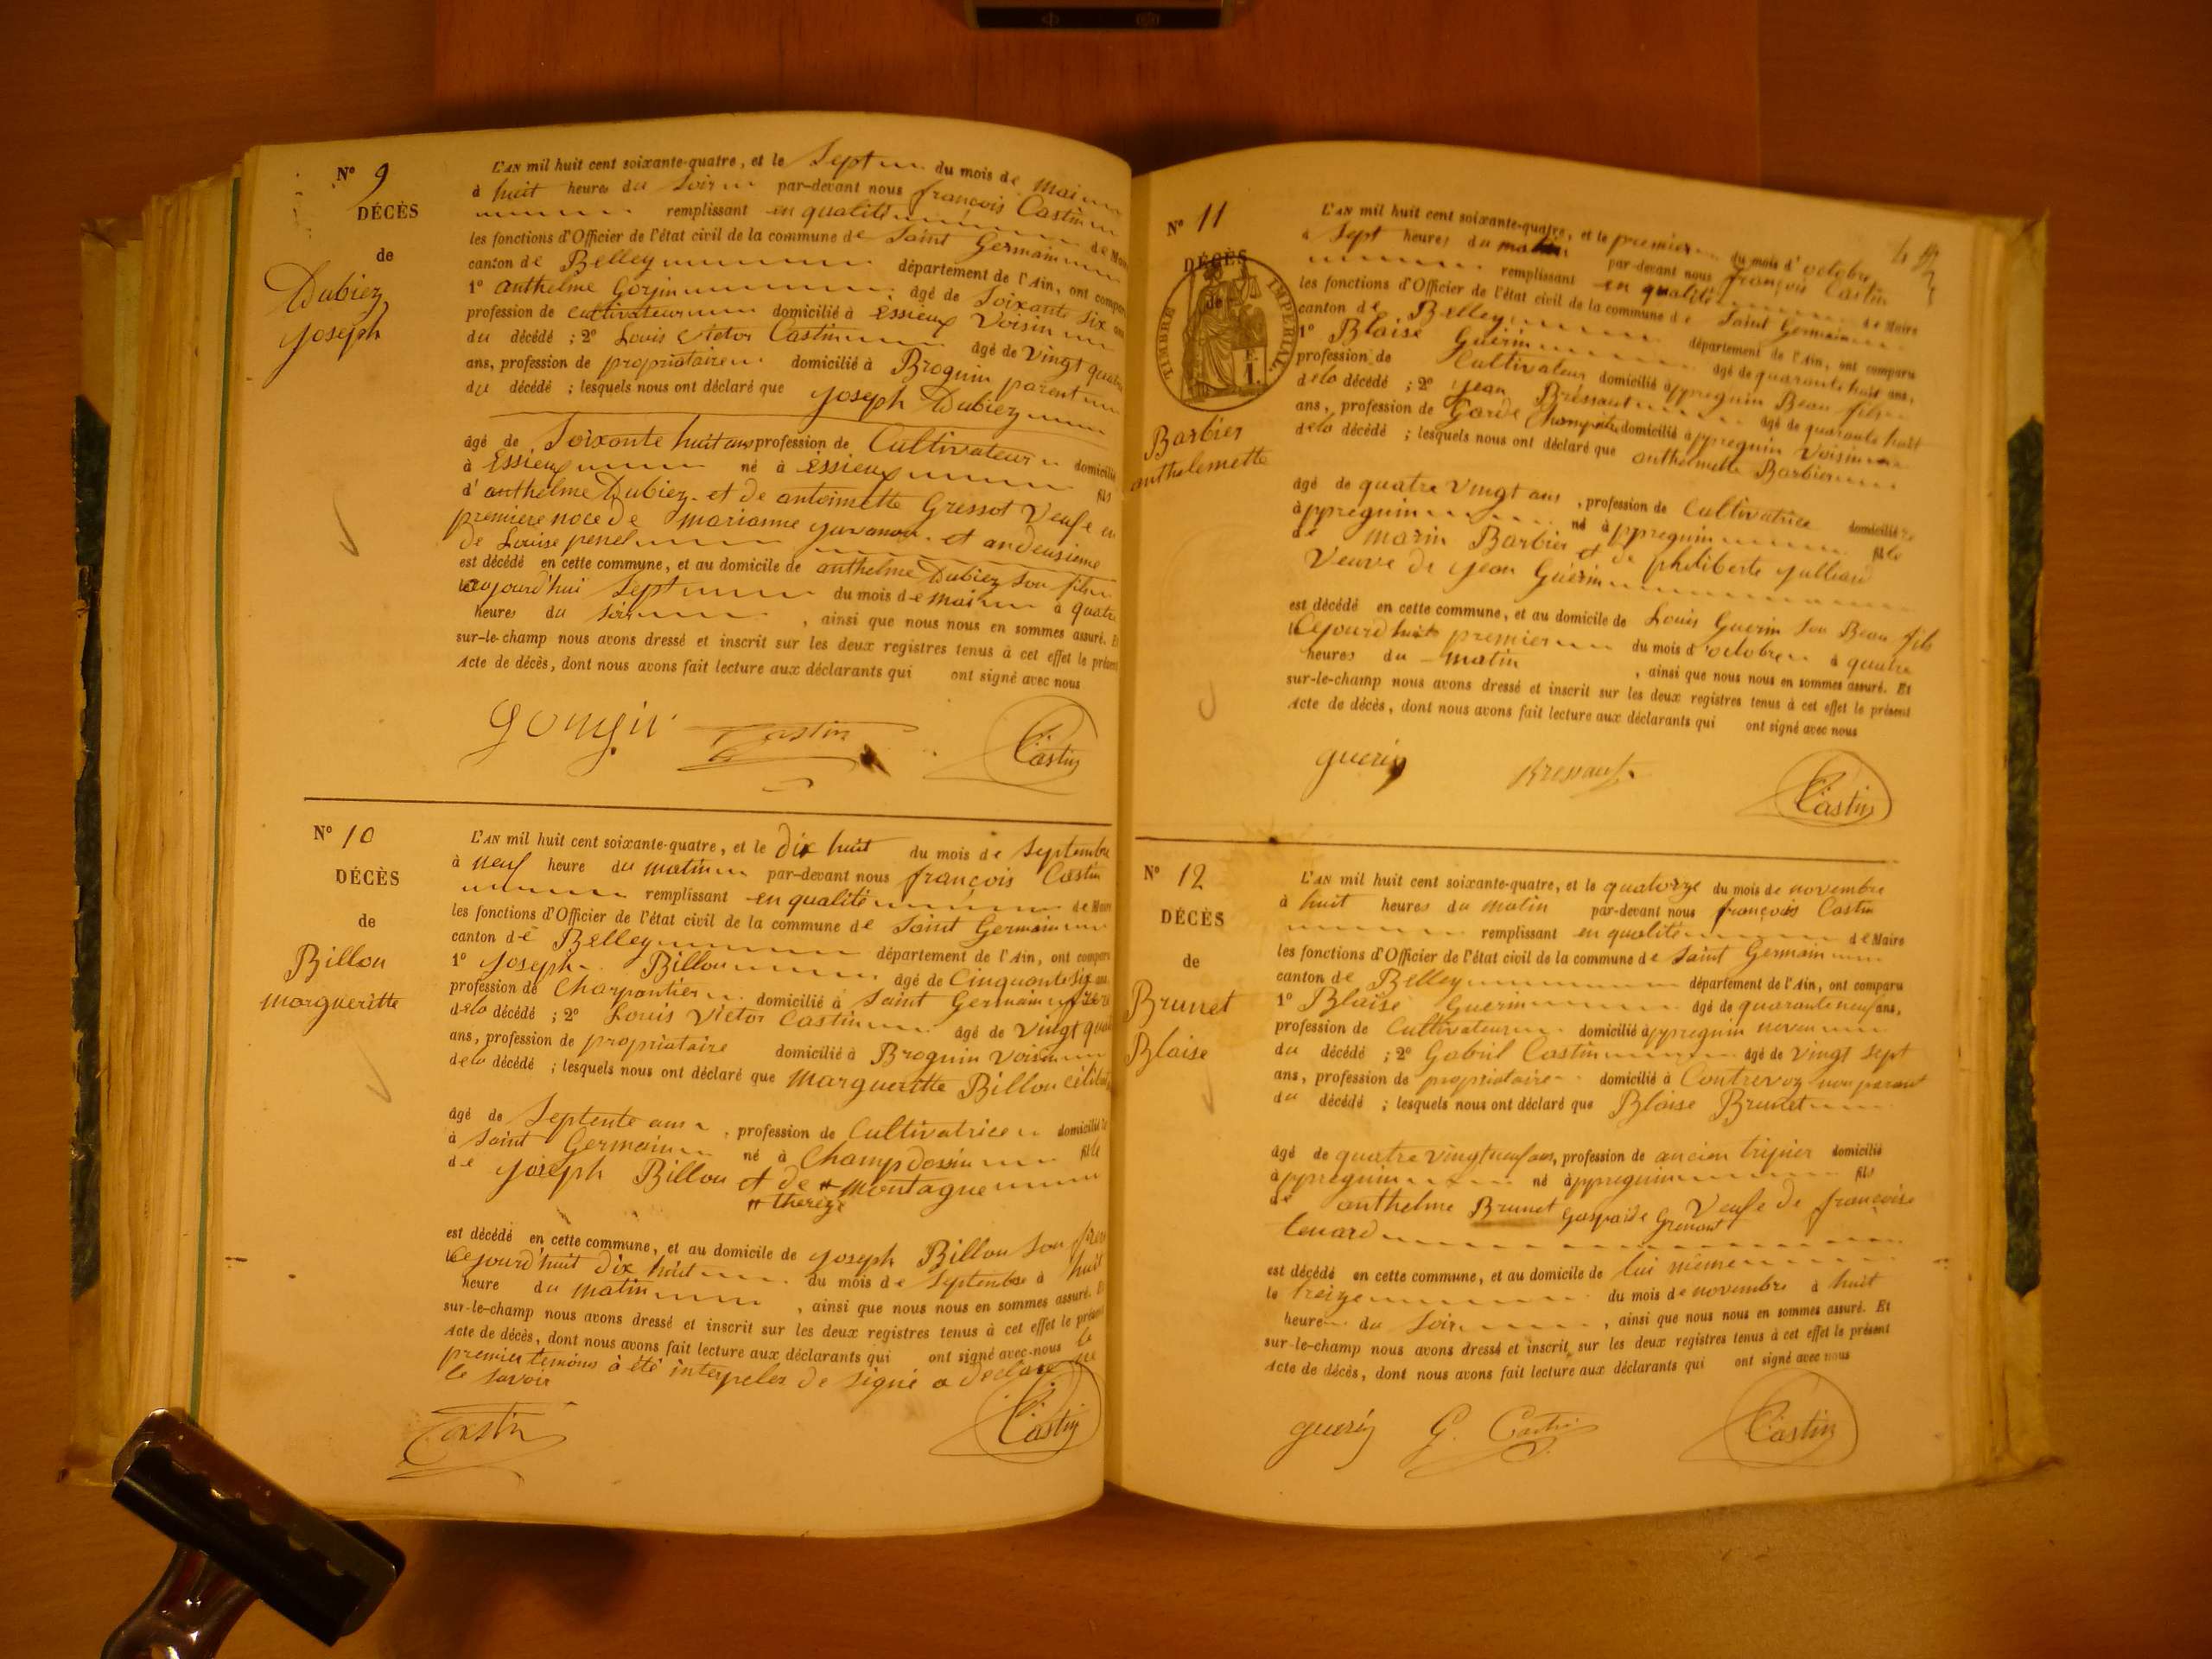 N° 9
DÉCÈS
de
Dubiez
Joseph
L'AN mil huit cent soixante-quatre, et le Sept du mois de Mai
à huit heures du Soir par-devant nous françois Castin
remplissant en qualité de Maire
les fonctions d'Officier de l'état civil de la commune de Saint Germain
canton de Belley département de l'Ain, ont comparu
1° anthelme Gojin âgé de Soixante Six ans
profession de cultivateur domicilié à Essieux Voisin
du décédé ; 2° Louis Victor Castin âgé de Vingt quatre
ans, profession de propriataire domicilié à Brognin parent
du décédé ; lesquels nous ont déclaré que Joseph Dubiez
âgé de Soixante huit ans profession de Cultivateur domicilié
à Essieux né à Essieux fils
d'anthelme Dubiez et de antoinette Gressot Veufe en
premiere noce de marianne et an deusieme
de Louise penel
est décédé en cette commune, et au domicile de anthelme Dubiez Son fils
aujourd'hui Sept du mois de mai à quatre
heures du Soir , ainsi que nous nous en sommes assuré. Et
sur-le-champ nous avons dressé et inscrit sur les deux registres tenus à cet effet le présent
Acte de décès, dont nous avons fait lecture aux déclarants qui ont signé avec nous
Castin Castin
N° 10
DÉCÈS
de
Billon
margueritte
L'AN mil huit cent soixante-quatre, et le Dix huit du mois de Septembre
à neuf heure du matin par-devant nous françois Castin
remplissant en qualité de Maire
les fonctions d'Officier de l'état civil de la commune de Saint Germain
canton de Belley département de l'Ain, ont comparu
1° Joseph Billon âgé de Cinquante Six ans
profession de Charpantier domicilié à Saint Germain frere
dela décédé ; 2° Louis Victor Castin âgé de Vingt quatre
ans, profession de propriataire domicilié à Brognin Voisin
dela décédé ; lesquels nous ont déclaré que Margueritte Billon
âgé de Septente ans , profession de Cultivatrice domiciliée
à Saint Germain né à Champdossin fille
de Joseph Billon et de montagne
thereze
est décédé en cette commune, et au domicile de Joseph Billon Son frere
le Cejourd'huit Dix huit du mois de Septembre à huit
heure du matin , ainsi que nous nous en sommes assuré. Et
sur-le-champ nous avons dressé et inscrit sur les deux registres tenus à cet effet le présent
Acte de décès, dont nous avons fait lecture aux déclarants qui ont signé avec nous le
premier temoins à été interpeler de signé a declaré ne
le Savoir
Castin Castin
N° 11
DÉCÈS
de
TIMBRE IMPERIAL
Barbier
anthelemette
L'AN mil huit cent soixante-quatre, et le premier du mois d'octobre
à Sept heures du matin par-devant nous françois Castin
remplissant en qualité de Maire
les fonctions d'Officier de l'état civil de la commune de Saint Germain
canton de Belley département de l'Ain, ont comparu
1° Blaise Guerin âgé de quarante huit ans,
profession de Cultivateur domicilié à ppregnin Beau fils
dela décédé ; 2° Jean Bressaut âgé de quarante huit
ans, profession de Garde Champetre domicilié à ppregnin Voisin
dela décédé ; lesquels nous ont déclaré que anthelmette Barbier
âgé de quatre Vingt ans , profession de Cultivatrice domiciliée
à ppregnin né à ppregnin fille
de marin Barbier et de philiberte Julliard
Veuve de Jean Guérin
est décédé en cette commune, et au domicile de Louis Guerin Son Beau fils
le Cejourd'huit premier du mois d'octobre à quatre
heures du matin , ainsi que nous nous en sommes assuré. Et
sur-le-champ nous avons dressé et inscrit sur les deux registres tenus à cet effet le présent
Acte de décès, dont nous avons fait lecture aux déclarants qui ont signé avec nous
guerin Bressaut Castin
N° 12
DÉCÈS
de
Brunet
Blaise
L'AN mil huit cent soixante-quatre, et le quatorze du mois de novembre
à huit heures du matin par-devant nous françois Castin
remplissant en qualité de Maire
les fonctions d'Officier de l'état civil de la commune de Saint Germain
canton de Belley département de l'Ain, ont comparu
1° Blaise Guerin âgé de quarante neuf ans,
profession de Cultivateur domicilié à ppregnin neveu
du décédé ; 2° Gabriel Castin âgé de Vingt Sept
ans, profession de propriataire domicilié à Contrevoz non parant
du décédé ; lesquels nous ont déclaré que Blaise Brunet
âgé de quatre Vingt neuf ans, profession de ancien domicilié
à ppregnin né à ppregnin fils
de anthelme Brunet Gasparde Grenant Veufe de françoise
tenard
est décédé en cette commune, et au domicile de lui même
le treize du mois de novembre à huit
heure du Soir , ainsi que nous nous en sommes assuré. Et
sur-le-champ nous avons dressé et inscrit sur les deux registres tenus à cet effet le présent
Acte de décès, dont nous avons fait lecture aux déclarants qui ont signé avec nous
guerin G. Castin Castin